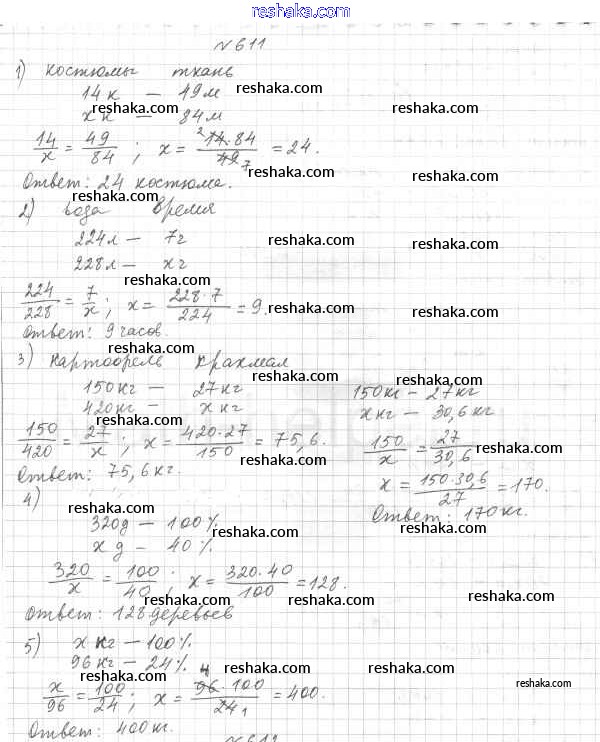 reshaka.com
N 611
1) костюмы ткань
14 к — 49 м
reshaka.com reshaka.com
x к — 84 м
reshaka.com
14/x = 49/84 ; x = 14·84/49 = 24.
2 7
reshaka.com reshaka.com
Ответ: 24 костюма.
reshaka.com
2) вода Время
224 л — 7 г
reshaka.com reshaka.com
228 л — x г
reshaka.com
224/228 = 7/x ; x = 228·7/224 = 9.
reshaka.com reshaka.com
Ответ: 9 часов.
reshaka.com
3) картофель крахмал
reshaka.com reshaka.com
150 кг — 27 кг 150 кг — 27 кг
420 кг — x кг x кг — 30,6 кг
reshaka.com
150/420 = 27/x ; x = 420·27/150 = 75,6. 150/x = 27/30,6
reshaka.com reshaka.com
Ответ: 75,6 кг. x = 150·30,6/27 = 170.
Ответ: 170 кг.
4)
reshaka.com
320 д — 100%
reshaka.com reshaka.com
x д — 40%
320/x = 100/40 ; x = 320·40/100 = 128.
reshaka.com reshaka.com reshaka.com
Ответ: 128 деревьев
5) x кг — 100%
96 кг — 24%
reshaka.com reshaka.com reshaka.com reshaka.com
x/96 = 100/24 ; x = 96·100/24 = 400.
4 1
reshaka.com reshaka.com
Ответ: 400 кг.